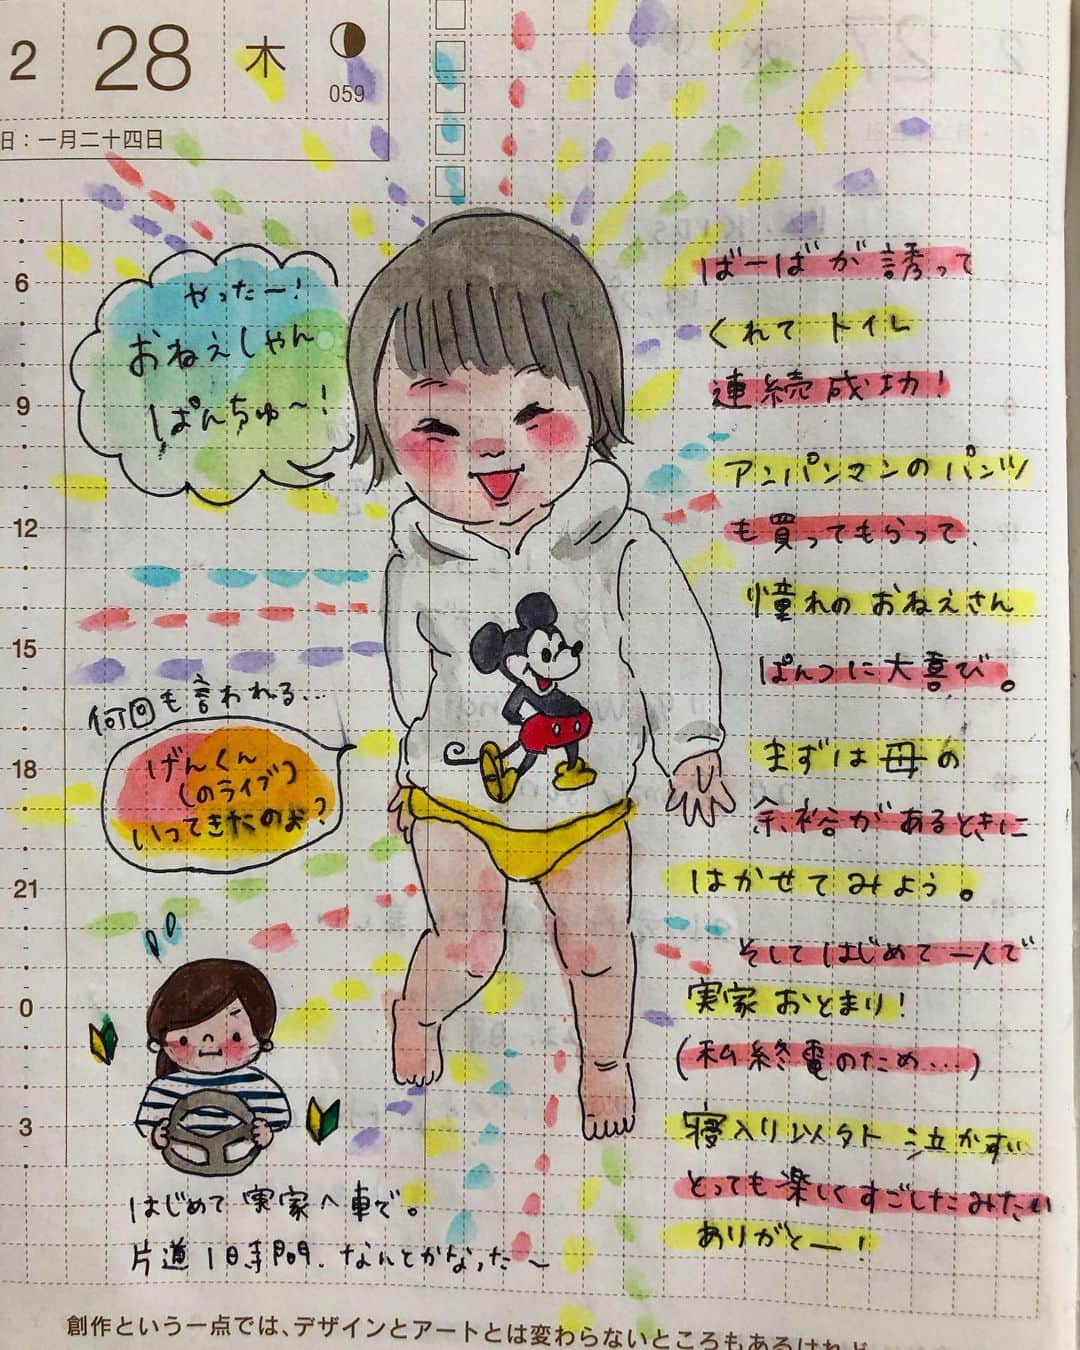 2 28 木
059
日：一月二十四日
やったー!
おねえしゃん
ぱんちゅ〜!
6
9
12
15
18
21
0
3
何回も言われる…
げんくん
(のライブ)
いってきたのぉ?
はじめて実家へ車で。
片道1時間、なんとかなった〜
ばーばが誘って
くれてトイレ
連続成功!
アンパンマンのパンツ
も買ってもらって、
憧れのおねえさん
ぱんつに大喜び。
まずは母の
余裕があるときに
はかせてみよう。
そしてはじめて一人で
実家おとまり!
(私終電のため…)
寝入り以外泣かずに
とっても楽しくすごしたみたい
ありがとー!
創作という一点では、デザインとアートとは変わらないところもあるけれど